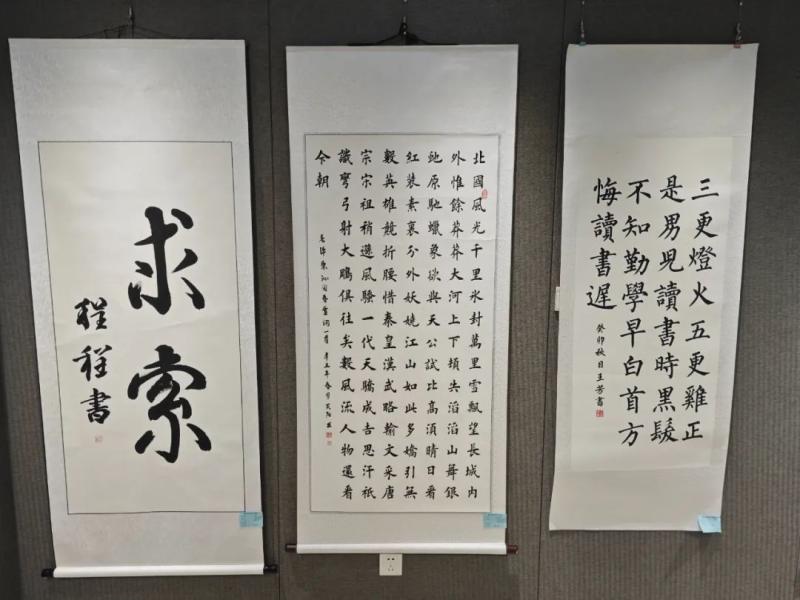 求索
程程書
北國風光千里氷封萬里雪飄望長城内
外惟餘莽莽大河上下頓失滔滔山舞銀
虵原馳蠟象欲與天公試比高須晴日看
紅装素裹分外妖嬈江山如此多嬌引無
數英雄競折腰惜秦皇漢武略輸文采唐
宗宋祖稍遜風騷一代天驕成吉思汗衹
識彎弓射大鵰俱往矣數風流人物還看
今朝
毛澤東沁園春雪詞一首 辛丑年春月
三更燈火五更雞正
是男兒讀書時黑髮
不知勤學早白首方
悔讀書遲
癸卯秋日王芳書